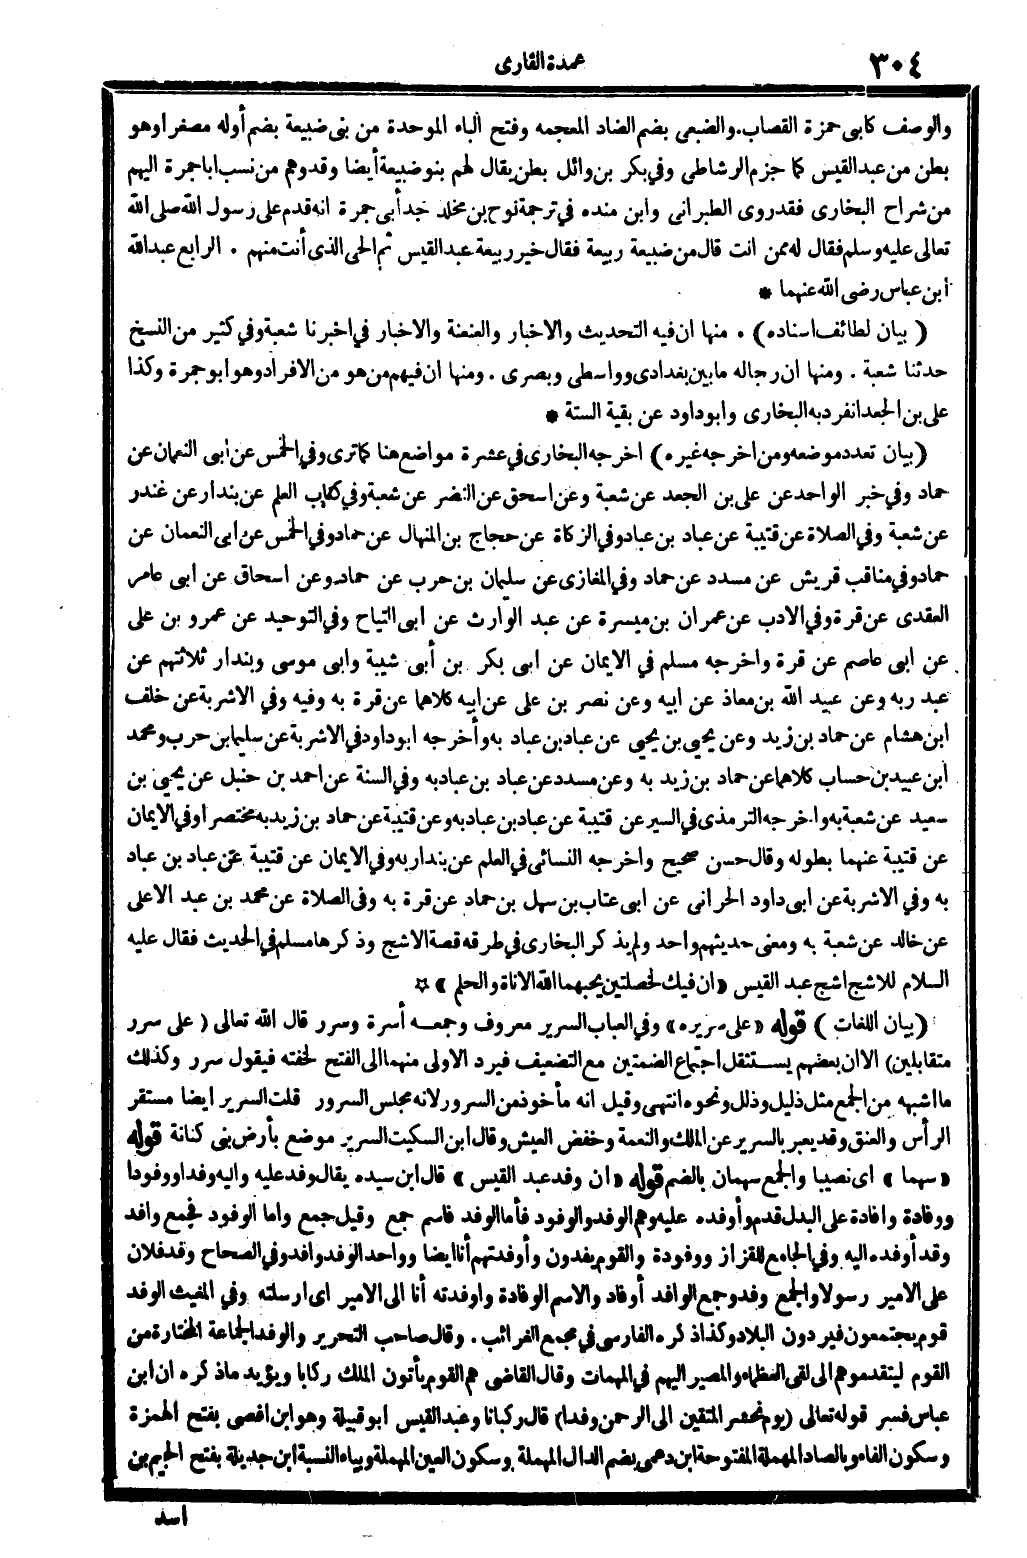 ٣٠٤
عمدة القارى
والوصف كابى حمزة القصاب. والضبعى بضم الضاد المعجمه وفتح الباء الموحدة من بنى ضبيعة بضم أوله مصغرا وهو
بطن من عبد القيس كما جزم الرشاطى وفي بكر بن وائل بطن يقال لهم بنو ضبيعة أيضا وقد وهم من نسب ابا جمرة اليهم
من شراح البخارى فقد روى الطبرانى وابن منده في ترجمة نوح بن مخلد جد أبى جمرة انه قدم على رسول الله صلى الله
تعالى عليه وسلم فقال له ممن انت قال من ضبيعة ربيعة فقال خير ربيعة عبد القيس ثم الحى الذى أنت منهم . الرابع عبد الله
ابن عباس رضى الله عنهما *
( بيان لطائف اسناده ) . منها ان فيه التحديث والاخبار والعنعنة والاخبار في اخبرنا شعبة وفي كثير من النسخ
حدثنا شعبة . ومنها ان رجاله ما بين بغدادى وواسطى وبصرى . ومنها ان فيهم من هو من الافراد وهو ابو جمرة وكذا
على بن الجعد انفرد به البخارى وابو داود عن بقية الستة *
( بيان تعدد موضعه ومن اخرجه غيره ) اخرجه البخارى في عشرة مواضع هنا كما ترى وفي الخمس عن ابى النعمان عن
حماد وفي خبر الواحد عن على بن الجعد عن شعبة وعن اسحق عن النضر عن شعبة وفي كتاب العلم عن بندار عن غندر
عن شعبة وفي الصلاة عن قتيبة عن عباد بن عباد وفي الزكاة عن حجاج بن المنهال عن حماد وفي الخمس عن ابى النعمان عن
حماد وفي مناقب قريش عن مسدد عن حماد وفي المغازى عن سليمان بن حرب عن حماد وعن اسحاق عن ابى عامر
العقدى عن قرة وفي الادب عن عمران بن ميسرة عن عبد الوارث عن ابى التياح وفي التوحيد عن عمرو بن على
عن ابى عاصم عن قرة واخرجه مسلم في الايمان عن ابى بكر بن أبى شيبة وابى موسى وبندار ثلاثتهم عن
عبد ربه وعن عبيد الله بن معاذ عن ابيه وعن نصر بن على عن ابيه كلاهما عن قرة به وفيه وفي الاشربة عن خلف
ابن هشام عن حماد بن زيد وعن يحيى بن يحيى عن عباد بن عباد به وأخرجه ابو داود في الاشربة عن سليمان بن حرب ومحمد
ابن عبيد بن حساب كلاهما عن حماد بن زيد به وعن مسدد عن عباد بن عباد به وفي السنة عن احمد بن حنبل عن يحيى بن
سعيد عن شعبة به واخرجه الترمذى في السير عن قتيبة عن عباد بن عباد به وعن قتيبة عن حماد بن زيد به مختصرا وفي الايمان
عن قتيبة عنهما بطوله وقال حسن صحيح واخرجه النسائى في العلم عن بندار به وفي الايمان عن قتيبة عن عباد بن عباد
به وفي الاشربة عن ابى داود الحرانى عن ابى عتاب بن سهل بن حماد عن قرة به وفى الصلاة عن محمد بن عبد الاعلى
عن خالد عن شعبة به ومعنى حديثهم واحد ولم يذكر البخارى في طرقه قصة الاشج وذكرها مسلم في الحديث فقال عليه
السلام للاشج اشج عبد القيس « ان فيك لخصلتين يحبهما الله الاناة والحلم » *
( بيان اللغات ) قوله « على سريره » وفي العباب السرير معروف وجمعه أسرة وسرر قال الله تعالى ( على سرر
متقابلين ) الا ان بعضهم يستثقل اجتماع الضمتين مع التضعيف فيرد الاولى منهما الى الفتح لخفته فيقول سرر وكذلك
ما اشبهه من الجمع مثل ذليل وذلل ونحوه انتهى وقيل انه مأخوذ من السرور لانه مجلس السرور قلت السرير ايضا مستقر
الرأس والعنق وقد يعبر بالسرير عن الملك والنعمة وخفض العيش وقال ابن السكيت السرير موضع بأرض بنى كنانة قوله
« سهما » اى نصيبا والجمع سهمان بالضم قوله « ان وفد عبد القيس » قال ابن سيده يقال وفد عليه واليه وفدا ووفودا
ووفادة وافادة على البدل قدم وأوفده عليه وهم الوفد والوفود فأما الوفد فاسم جمع وقيل جمع واما الوفود فجمع وافد
وقد أوفده اليه وفي الجامع للقزاز ووفودة والقوم يفدون وأوفدتهم أنا ايضا وواحد الوفد وافد وفي الصحاح وفد فلان
على الامير رسولا والجمع وفد وجمع الوافد أوفاد والاسم الوفادة واوفدته أنا الى الامير اى ارسلته وفي المغيث الوفد
قوم يجتمعون فيردون البلاد وكذا ذكره الفارسى في مجمع الغرائب . وقال صاحب التحرير والوفد الجماعة المختارة من
القوم ليتقدموهم الى لقى العظماء والمصير اليهم في المهمات وقال القاضى هم القوم يأتون الملك ركابا ويؤيد ما ذكره ان ابن
عباس فسر قوله تعالى ( يوم نحشر المتقين الى الرحمن وفدا ) قال ركبانا وعبد القيس ابو قبيلة وهو ابن افصى بفتح الهمزة
وسكون الفاء وبالصاد المهملة المفتوحة ابن دعمى بضم الدال المهملة وسكون العين المهملة وبياء النسبة ابن جديلة بفتح الجيم بن
اسد